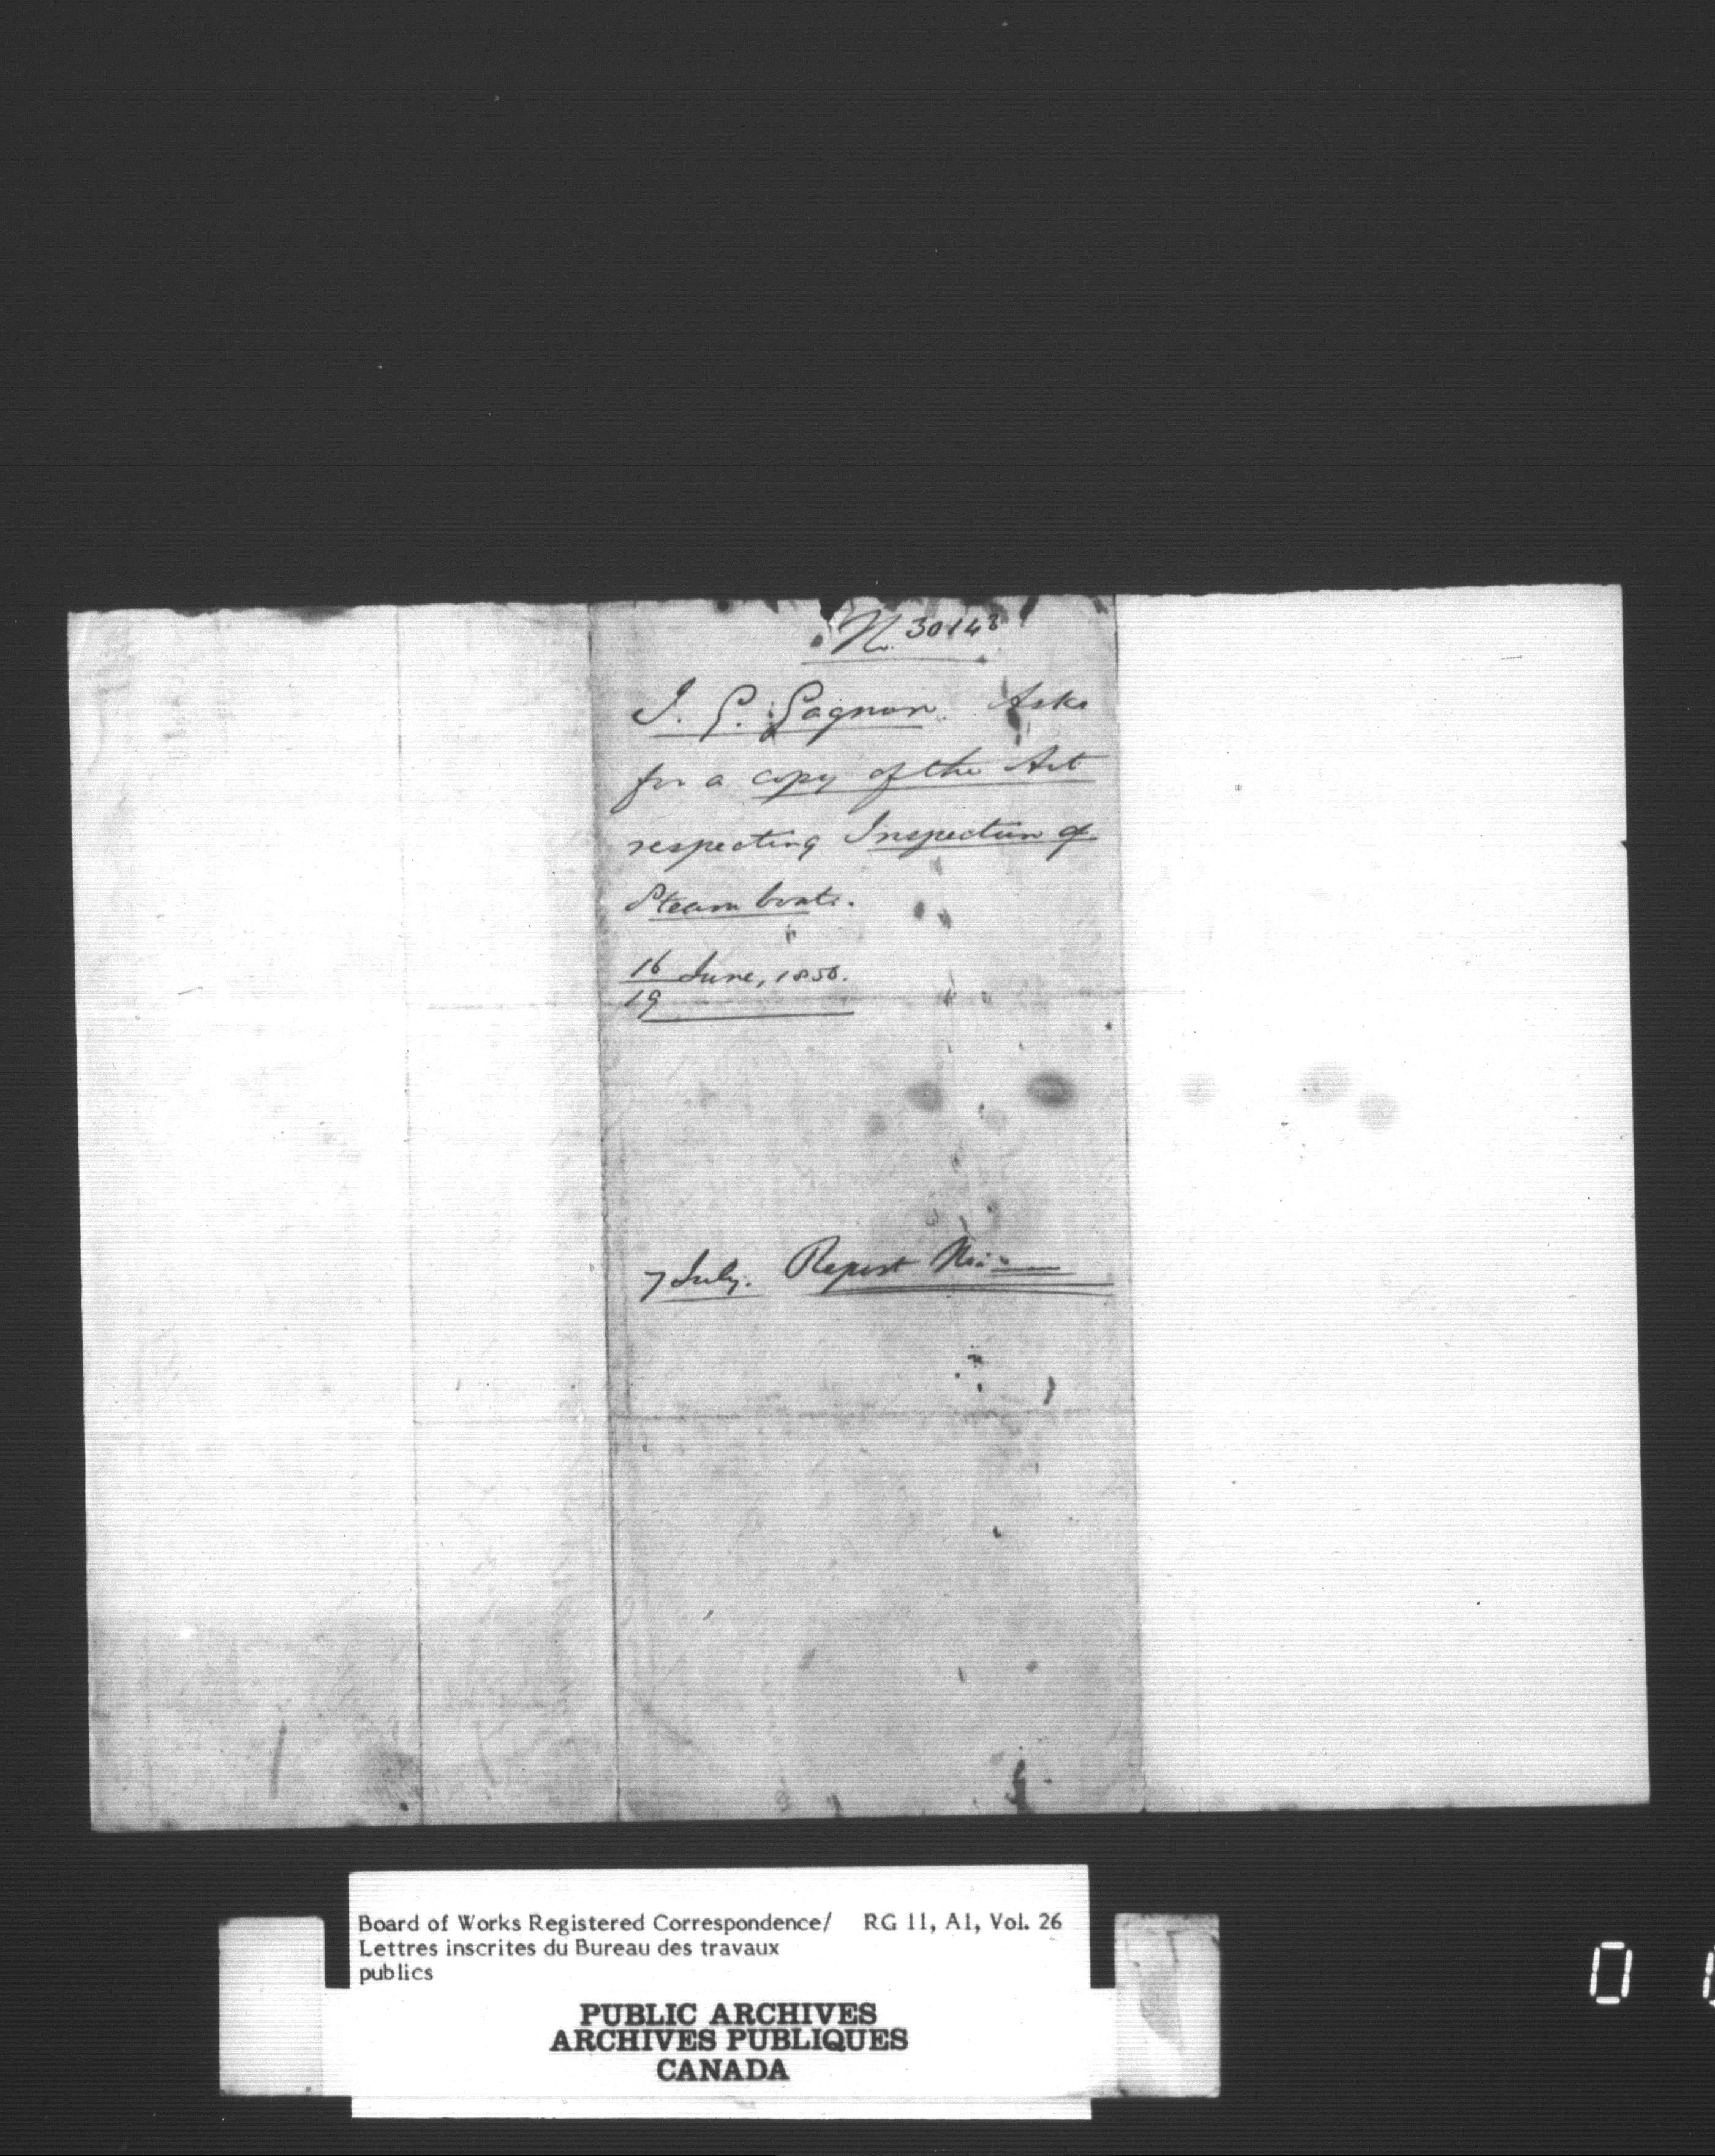 No. 30143
J. G. Gagnon. Asks
for a copy of the Act
respecting Inspection of
Steam boats.
16 June, 1856.
19
7 July. Report No:
Board of Works Registered Correspondence/ RG 11, A1, Vol. 26
Lettres inscrites du Bureau des travaux
publics
PUBLIC ARCHIVES
ARCHIVES PUBLIQUES
CANADA
0